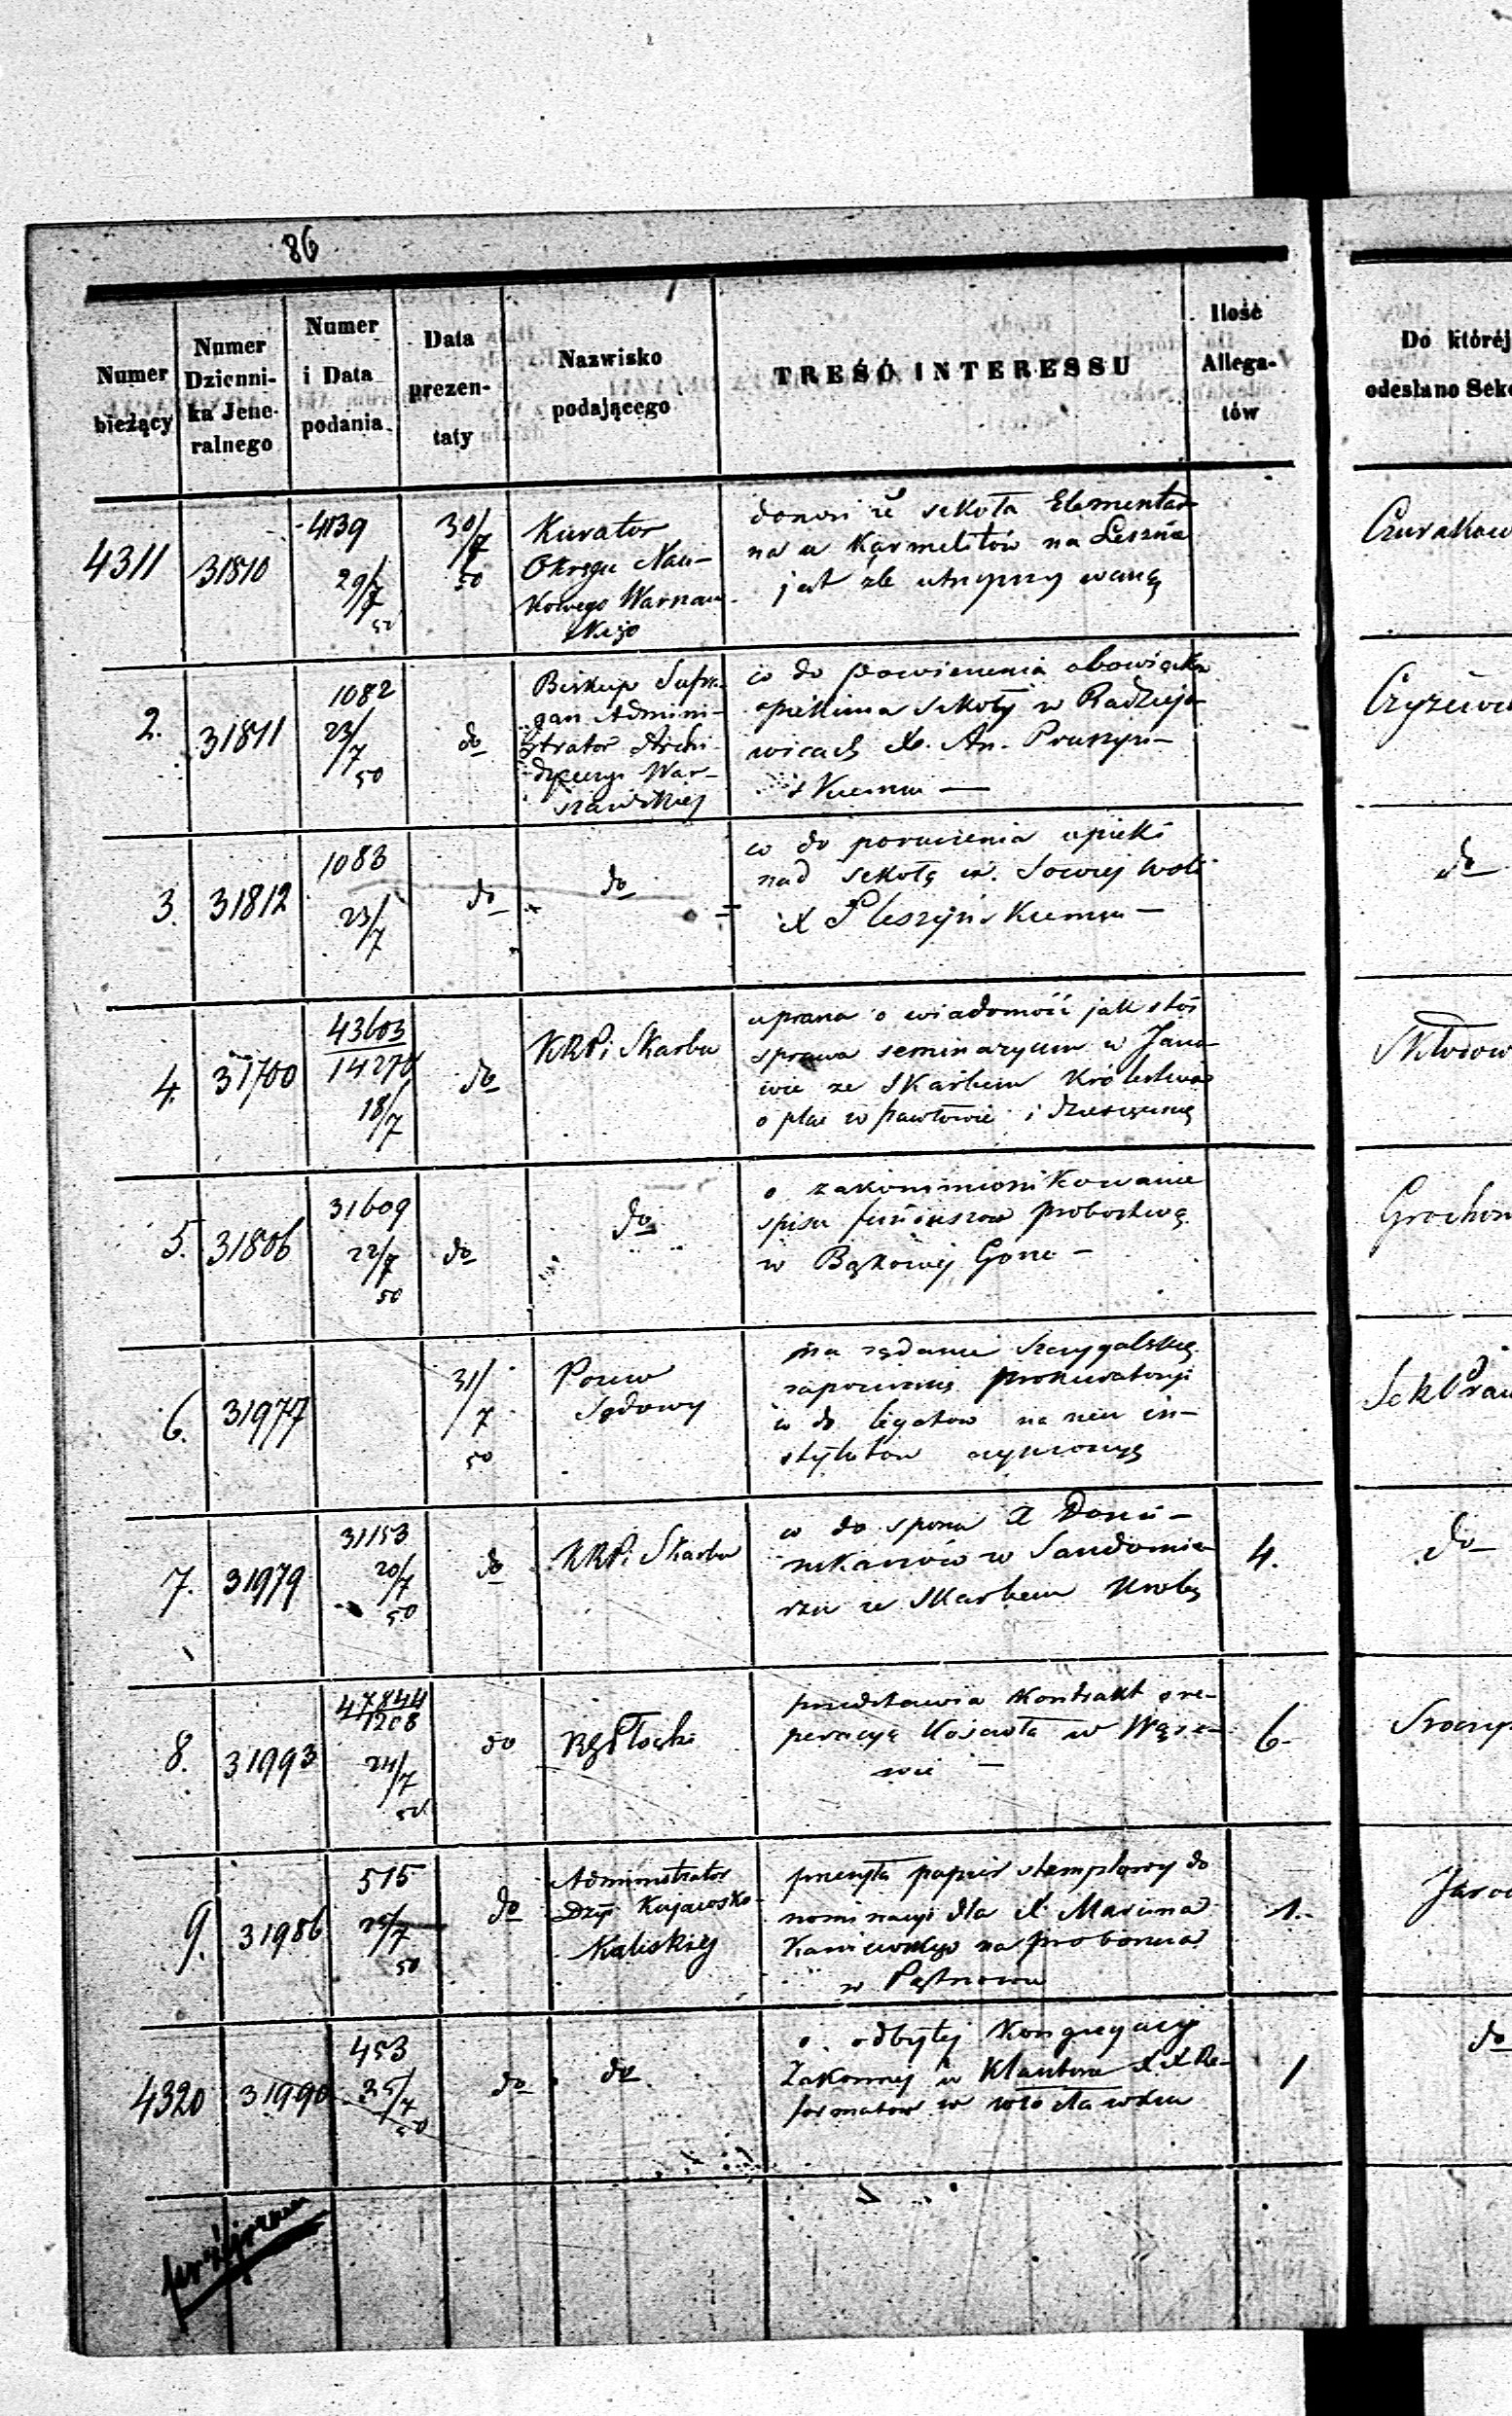 86
Numer bieżący
Numer Dzienni-ka Jene-ralnego
Numer i Data podania
Data prezen-taty
Nazwisko podającego
TREŚĆ INTERESSU
Ilość Allega-tów
Do któréj
odesłano
4311
31810
4139
29/7
50
30/7
50
Kurator
Okręgu Nau-
kowego Warszaw
skiego
donosi że szkoła Elementar
na u Karmelitów na Lesznie
jest źle utrzymywaną
2.
31811
1082
23/7
50
do
Biskup Sufra
gan Admini-
strator Archi-
dyecezyi War-
szawskiej
co do powierzenia obowiązku
opiekuna szkoły w Radziejo
wicach X. An. Pruszyń-
skiemu —
3.
31812
1083
23/7
do
do
co do poruczenia opieki
nad szkołą w. Sowiej Woli
X Pleszyńskiemu —
do
4.
31700
43603
14270
18/7
do
KRPi Skarbu
uprasza o wiadomość jak stoi
sprawa seminaryum w Jano-
wie ze Skarbem Królestwa
o plac w Pawłowie i dziesięcinę
5.
31806
31609
22/7
50
do
do
o zakommunikowanie
spisu funduszów probostwa
w Bąkowej Górze —
6.
31977
31/7
50
Pozew
Sądowy
na żądanie
zapozwanie prokuratoryi
co do legatów na rzecz in-
stytutów
7.
31979
31153
20/7
50
do
KRPi Skarbu
co do sporu X Domi-
nikanów w Sandomie
rzu ze Skarbem Krolest
4.
do
8.
31993
47844
1208
24/7
50
do
RGPłocki
przedstawia kontrakt o re-
peracyą kościoła w
wie —
6-
9.
31986
515
25/7
50
do
Administrator
Dyz. Kujawsko-
Kaliskiej
przesyła papier stemplowy do
nominacyi dla X Marcina
Kaniewskiego na proboszcza
w Pątnowie
1.
4320
31990
453
25/7
50
do
do
o odbytej Kongregacyi
Zakonnej w Klasztorze XX Re-
formatów w Włocławku
1
do